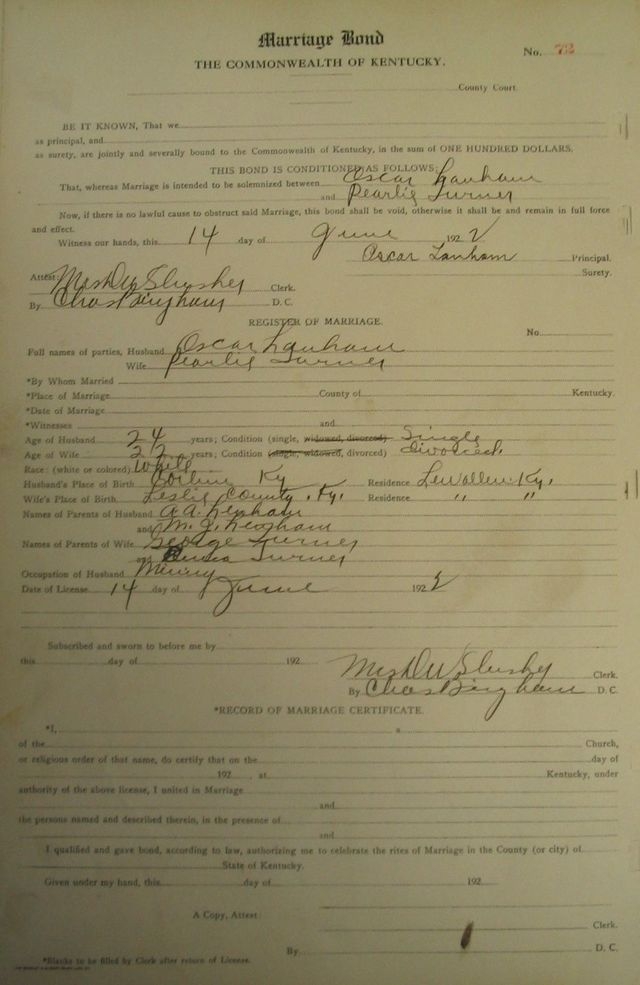 Marriage Bond
No. 732
THE COMMONWEALTH OF KENTUCKY.
County Court.
BE IT KNOWN, That we
as principal, and
as surety, are jointly and severally bound to the Commonwealth of Kentucky, in the sum of ONE HUNDRED DOLLARS.
THIS BOND IS CONDITIONED AS FOLLOWS:
That, whereas Marriage is intended to be solemnized between Oscar Lanham
and Pearlie Turner
Now, if there is no lawful cause to obstruct said Marriage, this bond shall be void, otherwise it shall be and remain in full force
and effect.
Witness our hands, this 14 day of June 1922
Oscar Lanham Principal.
Surety.
Attest: Mrs. D. W. Slusher Clerk.
By Chas Bingham D. C.
REGISTER OF MARRIAGE.
No.
Full names of parties, Husband Oscar Lanham
Wife Pearlie Turner
*By Whom Married
*Place of Marriage County of Kentucky.
*Date of Marriage
*Witnesses and
Age of Husband 24 years; Condition (single, widowed, divorced) Single
Age of Wife 22 years; Condition (single, widowed, divorced) divorced
Race: (white or colored) White
Husband's Place of Birth Corbin Ky Residence Lewallen Ky.
Wife's Place of Birth Leslie County, Ky. Residence " "
Names of Parents of Husband A. A. Lanham
and M. J. Lanham
Names of Parents of Wife George Turner
and Turner
Occupation of Husband Mining
Date of License 14 day of June 1922
Subscribed and sworn to before me by
this day of 192
Mrs. D. W. Slusher Clerk.
By Chas Bingham D. C.
*RECORD OF MARRIAGE CERTIFICATE.
*I, a
of the Church,
or religious order of that name, do certify that on the day of
192 at Kentucky, under
authority of the above license, I united in Marriage
and
the persons named and described therein, in the presence of
and
I qualified and gave bond, according to law, authorizing me to celebrate the rites of Marriage in the County (or city) of
State of Kentucky.
Given under my hand, this day of 192
A Copy, Attest:
Clerk.
By D. C.
*Blanks to be filled by Clerk after return of License.